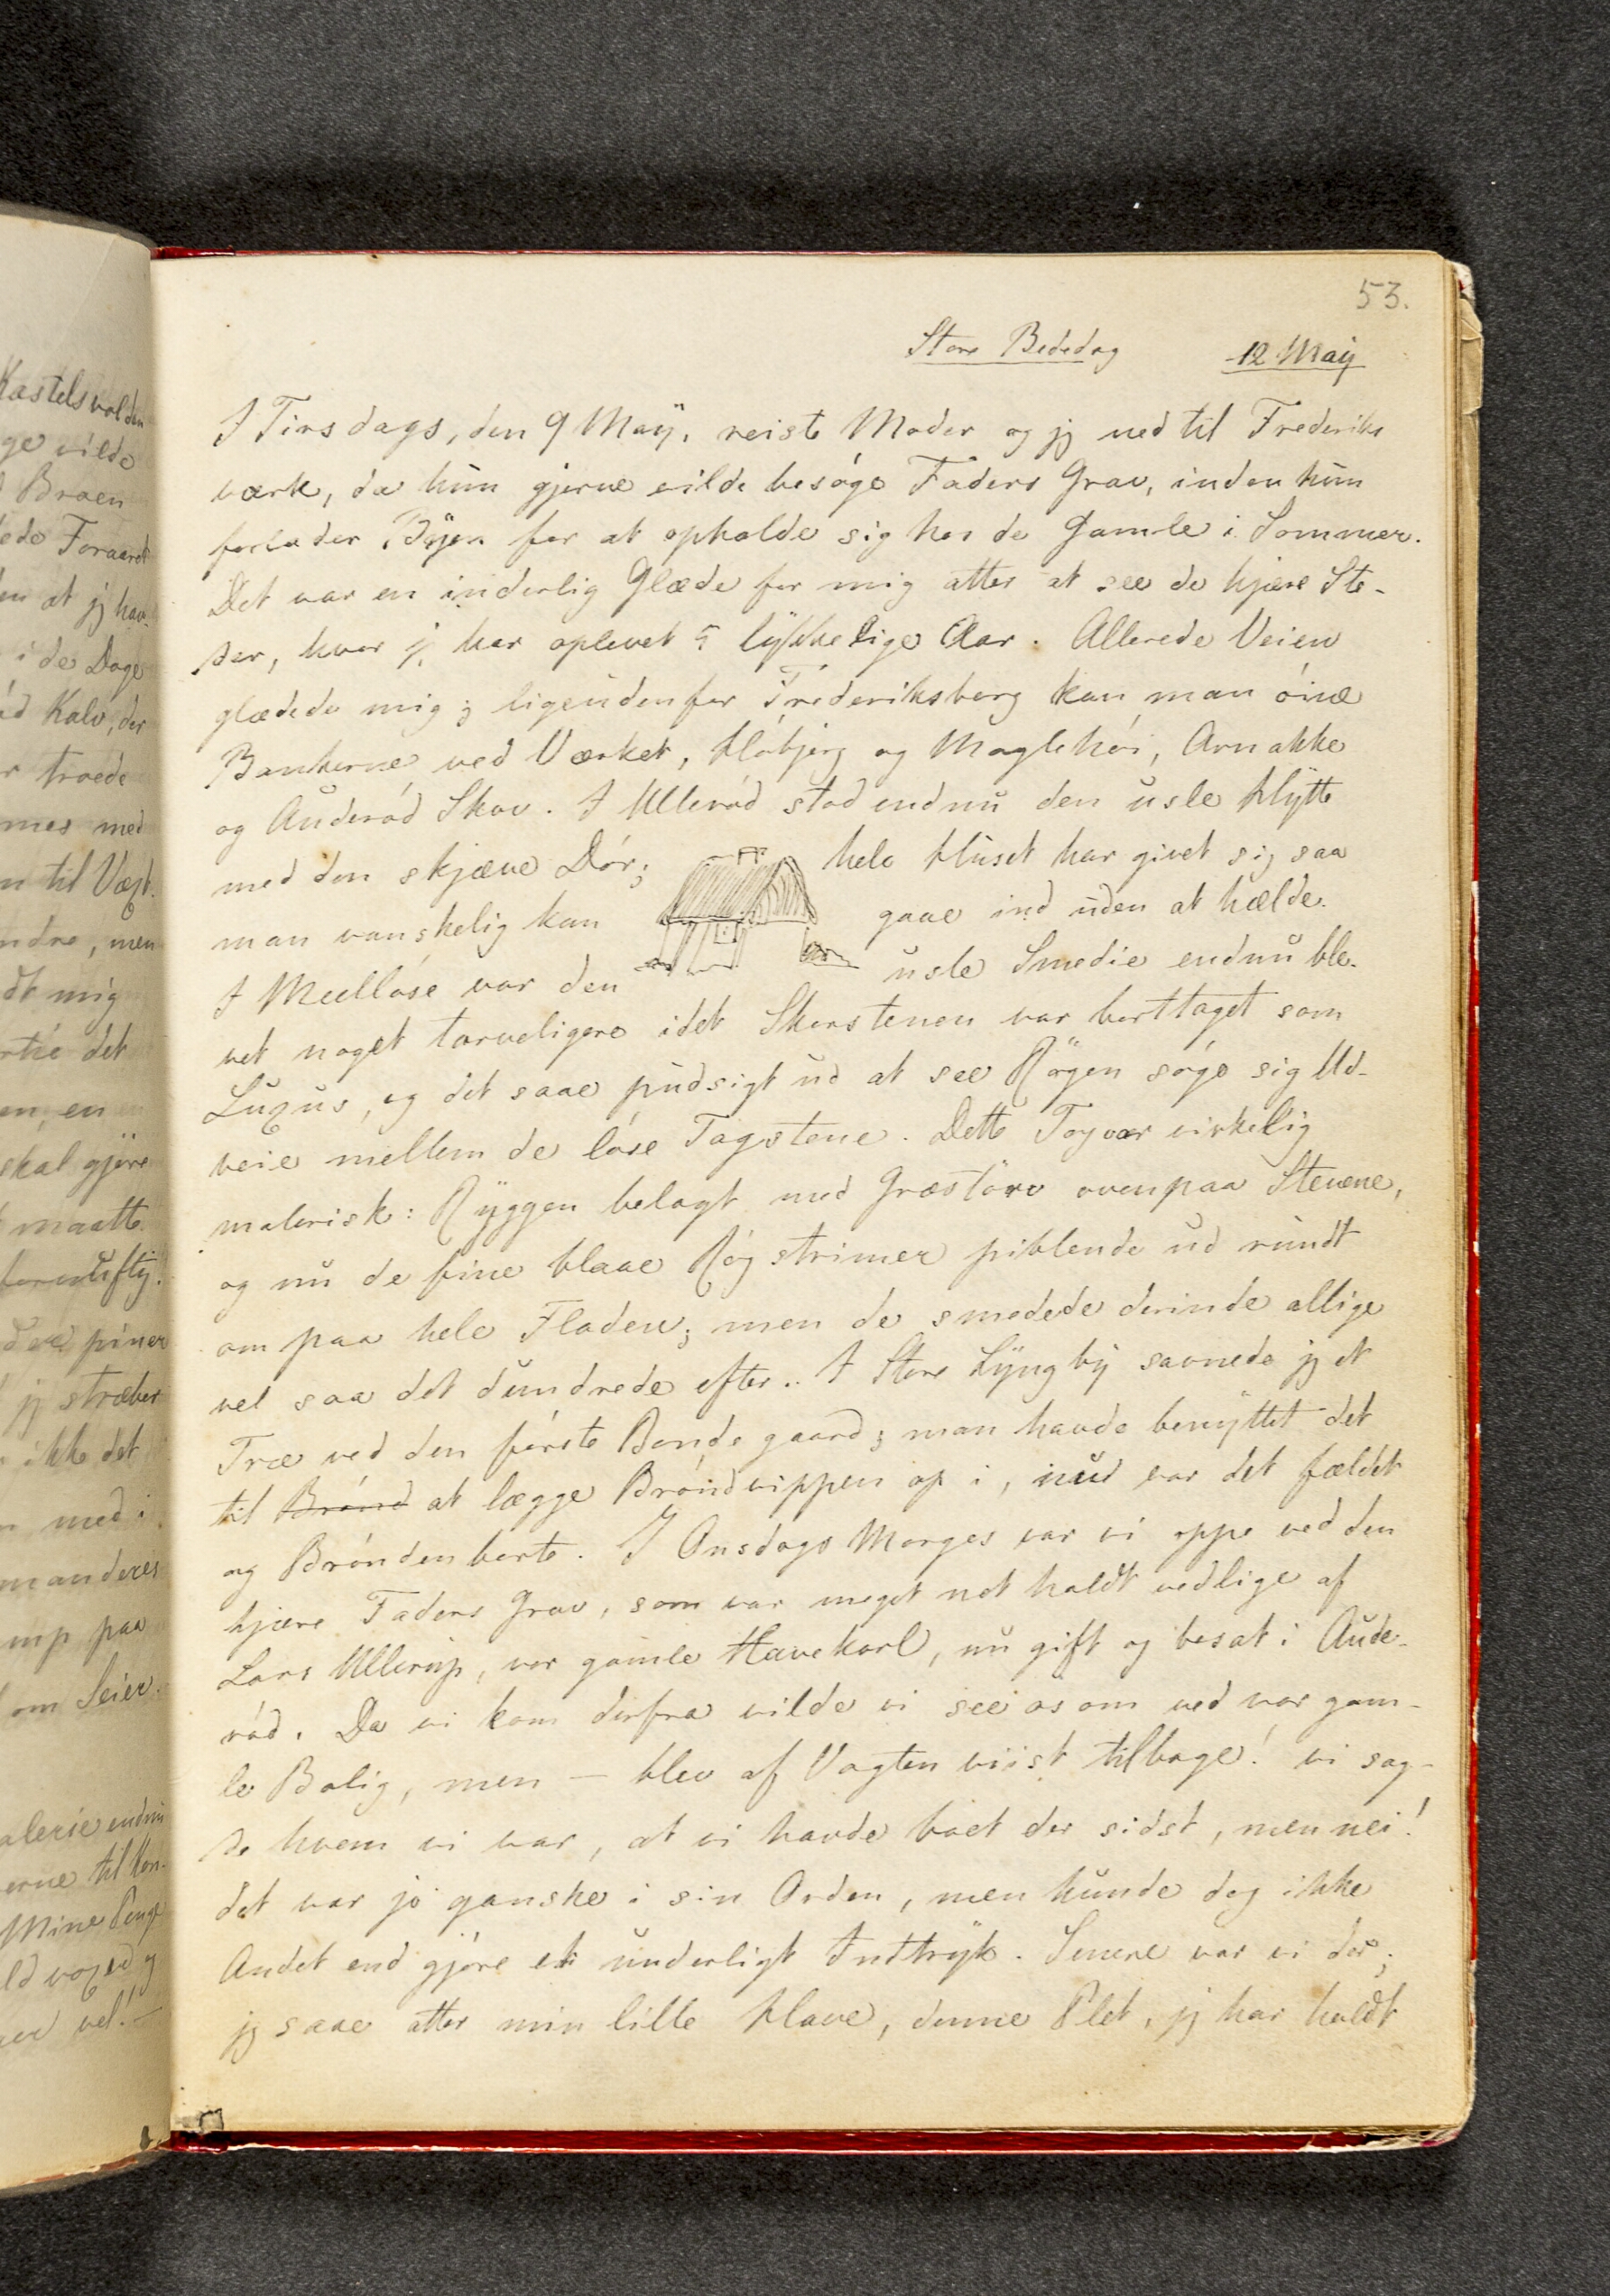 53.
Store Bededag 12 May
I Tirsdags, den 9 May, reiste Moder og jg ned til Frederiks
værk, da hun gjerne vilde besøge Faders Grav, inden hun
forlader Byen for at opholde sig hos de Gamle i Sommer.
Det var en inderlig Glæde for mig atter at see de kjære Ste-
der, hvor jg har oplevet 5 lykkelige Aar. Allerede Veien
glædede mig; ligeudenfor Frederiksborg kan man øine
Bankerne ved Værket, Høbjerg og Maglehøi, Arnakke
og Auderød Skov. I Ullerød stod endnu den usle Hytte
med den skjæve Dør; hele Huset har givet sig saa
man vanskelig kan gaae ind uden at hælde.
I Meelløse var den usle Smedie endnu ble-
vet noget tarveligere idet Skorstenen var borttaget som
Luxus, og det saae pudsigt ud at see Røgen søge sig Ud-
veie mellem de løse Tagstene. Dette Tag var virkelig
malerisk: Ryggen belagt med Græstørv ovenpaa Stenene,
og nu de fine blaae Røgstrimer piblende ud rundt
om paa hele Fladen; men de smedede derinde allige
vel saa det dundrede efter.. I Store Lyngby savnede jg et
Træ ved den første Bondegaard; man havde benyttet det
til Brønd at lægge Brøndvippen op i, nu var det fældet
og Brønden borte. I Onsdags Morges var vi oppe ved den
kjære Faders Grav, som var meget net holdt vedlige af
Lars Ullerup, vor gamle Havekarl, nu gift og bosat i Aude-
rød. Da vi kom derfra vilde vi see os om ved vor gam-
le Bolig, men – blev af Vagten viist tilbage! vi sag-
de hvem vi var, at vi havde boet der sidst, men nei!
det var jo ganske i sin Orden, men kunde dog ikke
Andet end gjøre et underligt Indtryk. Senere var vi der;
jg saae atter min lille Have, denne Plet, jg har holdt
Kastelsvolden
vilde
Broen
Foraaret
at jg hav-
i de Dage
Kalv, der
troede
med
til Vægt.
men
mig
det
en, en
skal gjøre
maatte
fornuftig.
piner
jg stræber
ikke det
med i
paa
om Seier.
endnu
til Kon-
Mine Penge
og
vel! –